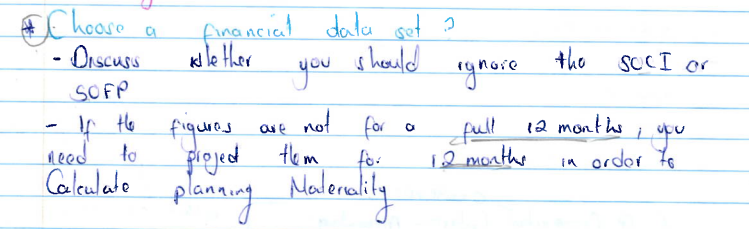 * Choose a financial data set ?
- Discuss whether you should ignore the SOCI or
SOFP
- If the figures are not for a full 12 months, you
need to project them for 12 months in order to
Calculate planning Materiality